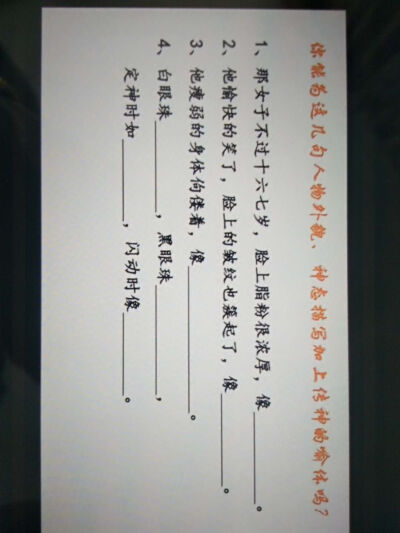 你能为这几句人物外貌、神态描写加上传神的喻体吗?
1、那女子不过十六七岁，脸上脂粉很浓厚，像________。
2、他愉快的笑了，脸上的皱纹也簇起了，像________。
3、他瘦弱的身体佝偻着，像________。
4、白眼珠________，黑眼珠________，
定神时如________，闪动时像________。